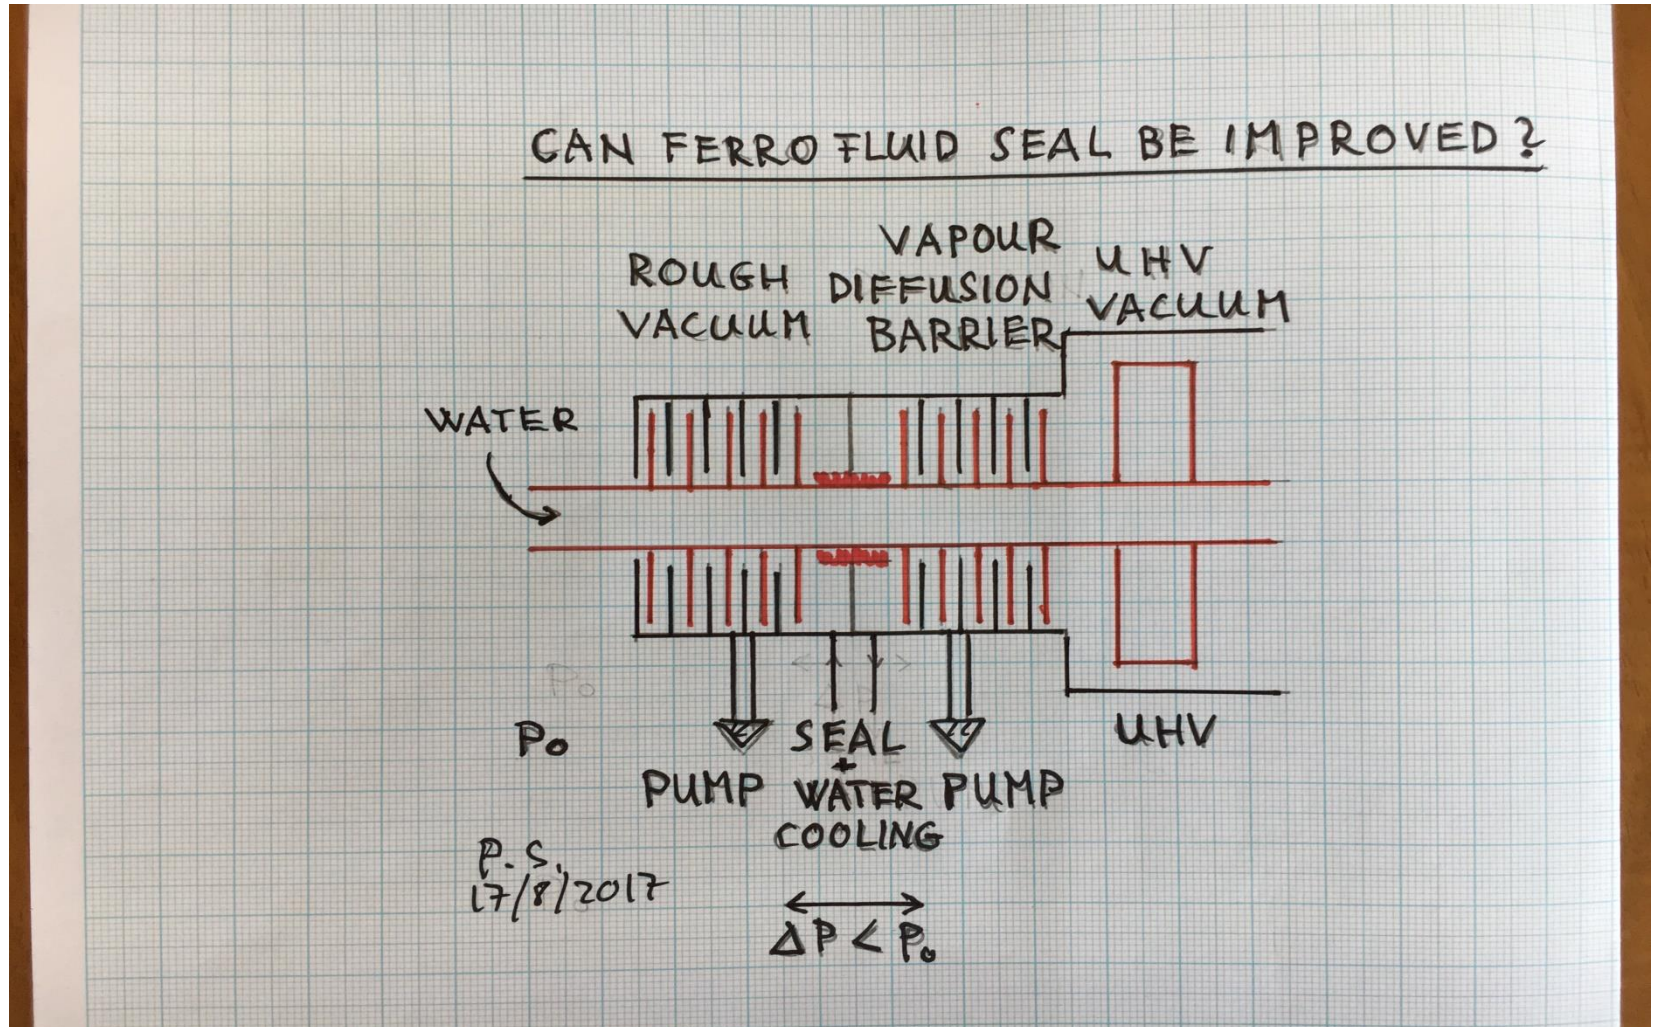 CAN FERRO FLUID SEAL BE IMPROVED?
ROUGH
VACUUM
VAPOUR
DIFFUSION
BARRIER
UHV
VACUUM
WATER
Po
PUMP
SEAL
+
WATER
COOLING
PUMP
UHV
P.S.
17/8/2017
ΔP < Po
Po